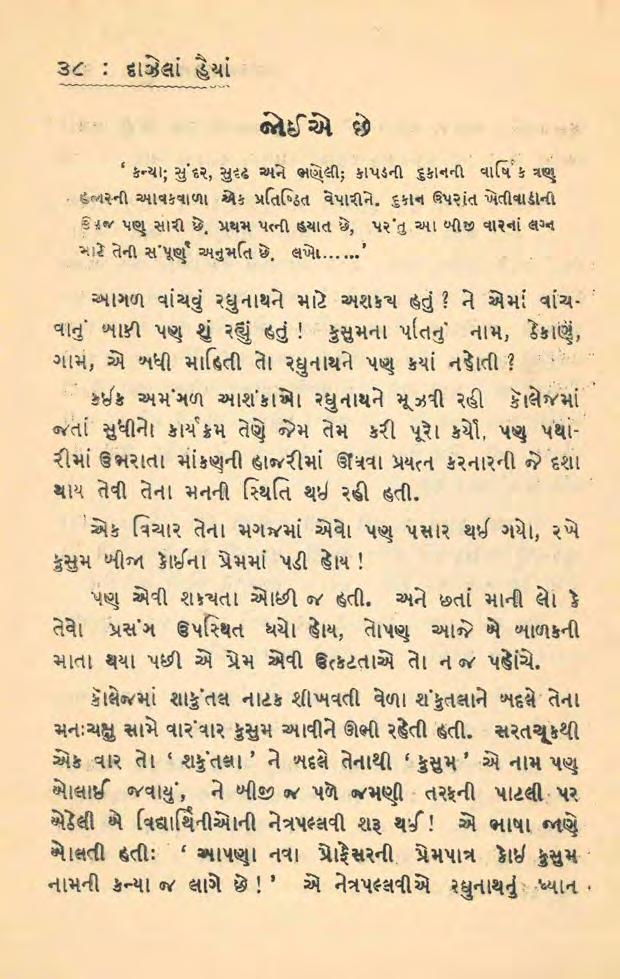 ૩૮ : દાઝેલાં હૈયાં
જોઈએ છે
‘ કન્યા; સુંદર, સુદૃઢ અને ભણેલી; કાપડની દુકાનની વાર્ષિક ત્રણ
હજારની આવકવાળા એક પ્રતિષ્ઠિત વેપારીને. દુકાન ઉપરાંત ખેતીવાડીની
ઊપજ પણ સારી છે. પ્રથમ પત્ની હયાત છે, પરંતુ આ બીજી વારનાં લગ્ન
માટે તેની સંપૂર્ણ અનુમતિ છે. લખો......’
આગળ વાંચવું રઘુનાથને માટે અશકય હતું ? ને એમાં વાંચ-
વાનું બાકી પણ શું રહ્યું હતું ! કુસુમના પતિનું નામ, ઠેકાણું,
ગામ, એ બધી માહિતી તો રઘુનાથને પણ કયાં નહોતી ?
કઈક અમંગળ આશંકાઓ રઘુનાથને મૂઝવી રહી કૉલેજમાં
જતાં સુધીનો કાર્યક્રમ તેણે જેમ તેમ કરી પૂરો કર્યો, પણ પથા-
રીમાં ઉભરાતા માંકણની હાજરીમાં ઊંઘવા પ્રયત્ન કરનારની જે દશા
થાય તેવી તેના મનની સ્થિતિ થઈ રહી હતી.
એક વિચાર તેના મગજમાં એવો પણ પસાર થઈ ગયો, રખે
કુસુમ બીજા કોઈના પ્રેમમાં પડી હોય !
પણ એવી શકયતા ઓછી જ હતી. અને છતાં માની લો કે
તેવો પ્રસંગ ઉપસ્થિત થયો હોય, તોપણ આજે બે બાળકની
માતા થયા પછી એ પ્રેમ એવી ઉત્કટતાએ તો ન જ પહોંચે.
કૉલેજમાં શાકુંતલ નાટક શીખવતી વેળા શંકુતલાને બદલે તેના
મનઃચક્ષુ સામે વારંવાર કુસુમ આવીને ઊભી રહેતી હતી. સરતચૂકથી
એક વાર તો ‘ શકુંતલા ’ ને બદલે તેનાથી ‘ કુસુમ ’ એ નામ પણ
બોલાઈ જવાયું, ને બીજી જ પળે જમણી તરફની પાટલી પર
બેઠેલી બે વિદ્યાર્થિનીઓની નેત્રપલ્લવી શરૂ થઈ ! એ ભાષા જાણે
બોલતી હતીઃ ‘ આપણા નવા પ્રોફેસરની પ્રેમપાત્ર કોઈ કુસુમ
નામની કન્યા જ લાગે છે ! ’ એ નેત્રપલ્લવીએ રઘુનાથનું ધ્યાન